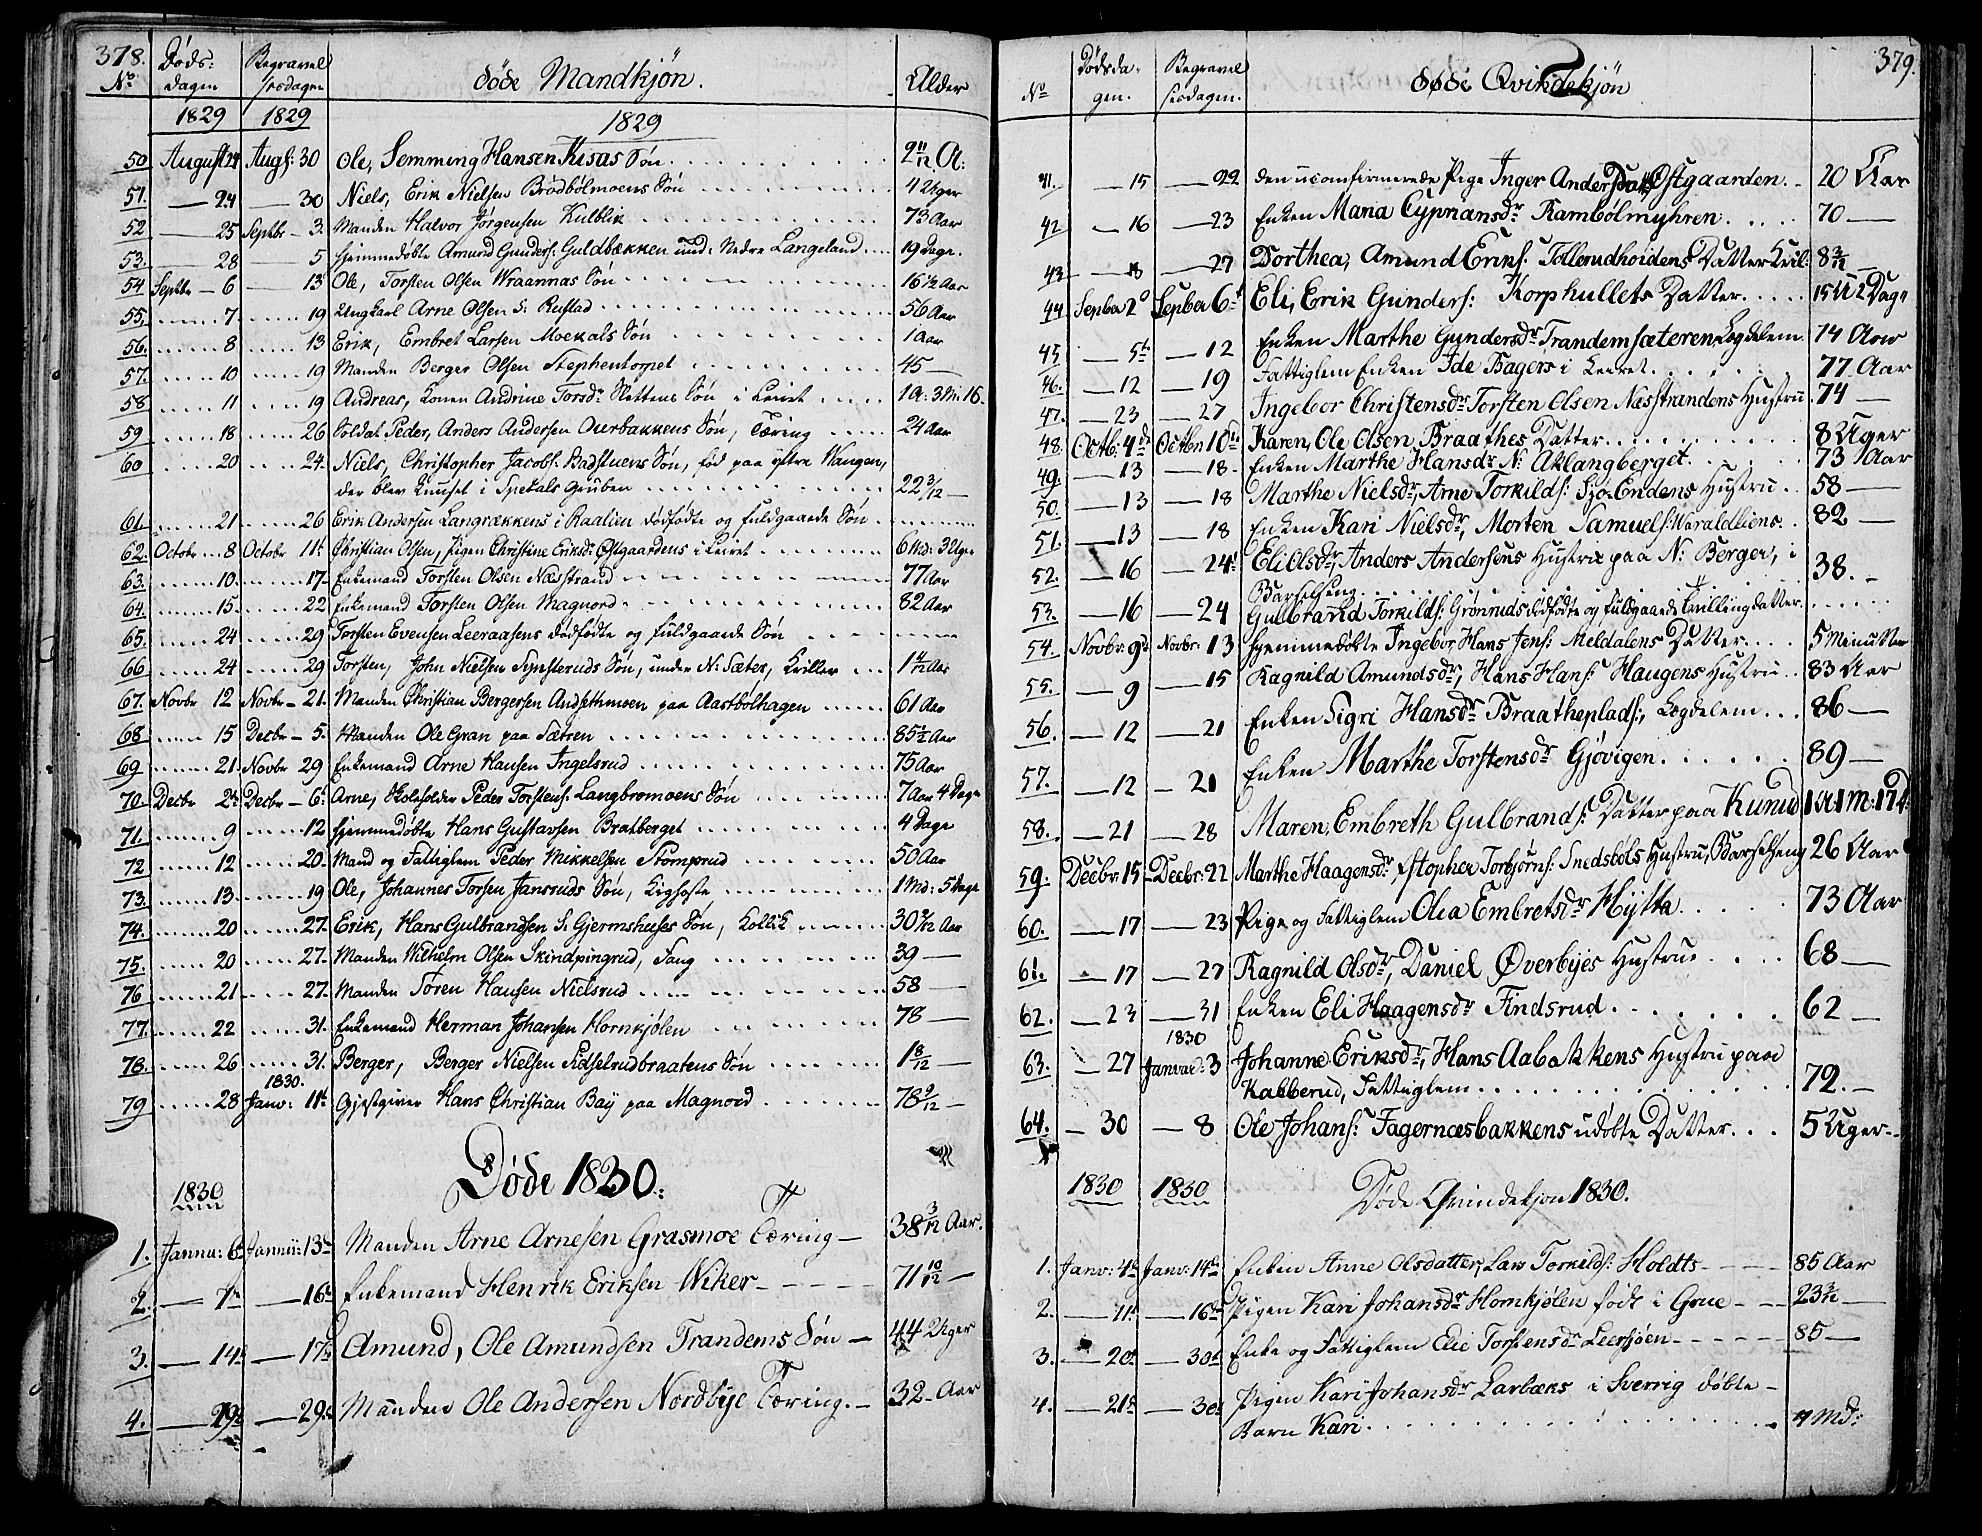 378.
No
Døds:
dagen
Begravel
sesdagen
døde Mandkjøn.
Alder
1829 1829 1829
50 August 24 Augs: 30 Ole, Semming Hansen Kisas Søn 2 11/12 A:
51. — 24 — 30 Niels, Erik Nielsen Brødbølmoens Søn 4 Uger
52 — 25 Septbr – 3. Manden Halvor Jørgensen Kulblik 73 Aar
53. — 28 — 5 hjemmedøbte Amund Gunders: Guldbækken und: Nedre Langeland 19 Dage.
54 Septbr – 6 — 13 Ole, Torsten Olsen Wraannas Søn 16 1/2 Aar
55. 7. 19 Ungkarl Arne Olsen S: Rustad 56 Aar
56. 8 13 Erik, Embret Larsen Moekals Søn 1 Aar
57. 10 19 Manden Berger Olsen Stephentorpet 45 —
58 11 19 Andreas, Konen Andrine Torsdr Slettens Søn i Leiret 1 A: 3 M: 16.
59 18 26 Soldat Peder, Anders Andersen Ourbakkens Søn, Tæring 24 Aar
60 20 24. Niels, Christopher Jacobs: Badstuens Søn, fød paa ytre Vangen,
der blev knuset i Spetals Gruben 22 3/12 —
61. 21 26 Erik Andersen Langrækkens i Raalien dødfødte og fuldgaaede Søn
62. Octobr 8 Octobr 11te Christian Olsen, pigen Christine Eriksdr Østgaardens i Leiret 6 Md: 3 Uge
63. 10. 17- Enkemand Torsten Olsen Næsstrand 77 Aar
64. 15. 22 Enkemand Torsten Olsen Magnord 82 Aar
65. 24 29 Torsten Evensen Leeraasens dødfødte og fuldgaaede Søn
66 24 29 Torsten, John Nielsen Synsteruds Søn, under N: Sæter, Kriller 1 4/12 Aar
67. Novbr 12 Novbr – 21. Manden Christian Bergersen Andsethmoen paa Aastbølhagen 61 Aar
68 15 Decbr – 5. Manden Ole Gran paa Sætren 85 1/2 Aar
69 21. Novbr 29 Enkemand Arne Hansen Ingelsrud 75 Aar
70. Decbr 2de Decbr – 6te Arne, Skoleholder Peder Torstens: Langbromoens Søn 7 Aar 4 Dage
71. 9 12 hjemmedøbte Hans Gustavsen Bratberget 4 Dage
72 12 20. Mand og Fattiglem Peder Mikkelsen Stomprud 50 Aar
73. 13. 19 Ole, Johannes Torsen Jansruds Søn, Kighoste 1 Md: 5 Dage
74. 20 27. Erik, Hans Gulbrandsen S. Gjermshuses Søn, Kollik 30 2/12 Aar
75. 20 27- Manden Wilhelm Olsen Skindpingrud, Fang 39 —
76 21 27. Manden Søren Hansen Nielsrud 58 —
77. 22 31. Enkemand Herman Johansen Hornkjølen 78 —
78. 26 31. Berger, Berger Nielsen Sidselrudbraatens Søn 1 8/12 —
1830.
79 28 Janv: 11te Gjestgiver Hans Christian Bay paa Magnord 78 9/12 —
Døde 1830.
1830
1. Janua: 6te Januii: 13de Manden Arne Arnesen Grasmoe Tæring — 38 3/12 Aar.
2. — 7de — 16te Enkemand Henrik Eriksen Wiker 71 10/12 —
3. — 14de — 17de Amund, Ole Amundsen Trandems Søn — 44 Uger
4. — 19de — 29de Manden Ole Andersen Nordbye Tæring. — 32 – Aar
379.
No
Dødsda-
gen.
Begravel
sesdagen.
døde Qvindekjøn
41. — 15 — 22 den uconfirmerede Pige Inger Andersdatter Østgaarden. 20 Aar
42 — 16 — 23 Enken Maria Cypriansdr Rambølmyhren 70 —
43 — 18 — 27 Dorthea, Amund Eriks: Tollerudhoidens Datter Kril: 8 3/12 —
44 Sepber 2d Sepber 6te Eli, Erik Gunders: Korphullets Datter 15 U 2 Dag
45 — 5te — 12 Enken Marthe Gundersdr Trandemsæteren Lægdelem. 74 Aar
46. — 12 — 19 Fattiglem Enken Ide Bagers i Leiret. 77 Aar
47. — 23 — 27 Ingebor Christensdr Torsten Olsen Næsstrandens Hustru 74 —
48. Octb: 4de Octbr 10de Karen, Ole Olsen Braathes Datter 8 Uger
49. — 13 — 18 Enken Marthe Hansdr N: Aklangberget. 73 Aar
50. — 13 — 18 Marthe Nielsdr, Arne Torkilds: Sjø-Endens Hustru 58 —
51. — 13 — 18 Enken Kari Nielsdr, Morten Samuels: Varaldliens 82 —
52. — 16 — 24de Eli Olsdr, Anders Andersens Hustrue paa N: Berger, i
Barselseng 38. –
53. — 16 — 24 Gulbrand Torkilds: Grønruds dødfødte og fuldgaaede Tvillingdatter.
54. Novbr: 9de Novbr: 13 hjemmedøbte Ingebor, Hans Jens: Meldalens Datter 5 Minutter
55. — 9 — 15 Ragnild Amundsdr, Hans Hans: Haugens Hustru 83 Aar
56. — 12 — 21 Enken Sigri Hansdr Braatheplads:, Lægdelem 86 —
57. — 12 — 21 Enken Marthe Torstensdr Gjøvigen 89 —
58. — 21 — 28 Maren, Embreth Gulbrands: Datter paa Kurud 1 A: 1 M: 17 d:
59. Decbr: 15 Decbr: 22 Marthe Haagensdr, Xstopher Torbjørns: Snedsbøls Hustru, Barselseng 26 Aar
60. — 17 — 23 Pige og Fattiglem Olea Embretsdr Hÿtta 73 Aar
61. — 17 — 27 Ragnild Olsdr, Daniel Øverbyes Hustrue 68 —
62. — 23 — 31 Enken Eli Haagensdr Findsrud 62 —
1830
63. — 27 Januar: 3 Johanne Eriksdr, Hans Aabakkens Hustru paa
Kabberud, Fattiglem 72. –
64. — 30 — 8 Ole Johans: Fagernæsbakkens udøbte Datter 5 Uger
1830 1830 Døde Qvindekjøn 1830.
1. Janv: 4de Janv: 14de Enken Anne Olsdatter, Lars Torkilds: Holdts 85 Aar
2. — 11te — 16de Pigen Kari Johansdr Hornkjølen født i Grue 23 3/12 —
3. — 20de — 30te Enke og Fattiglem Elie Torstensdr Leersjøen 85 —
4. — 21de — 30te Pigen Kari Johansdr Larbæks i Sverrig døbte
Barn Kari 4 Md: